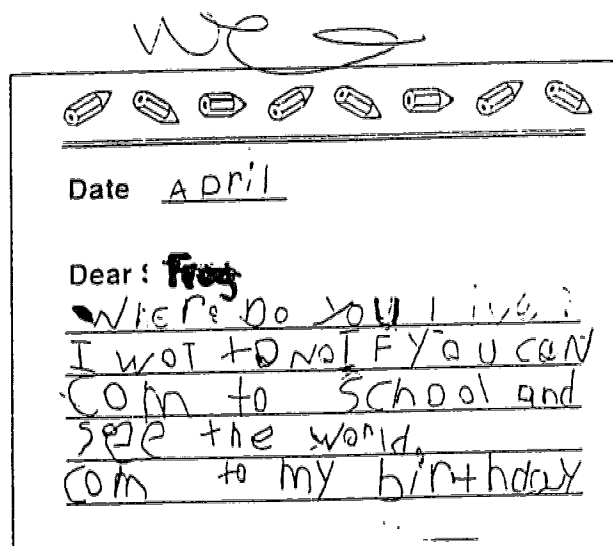 We
Date April
Dear : Frog
Wiere Do you live?
I wot to no IF You can
Com to School and
see the world.
Com to my birthday